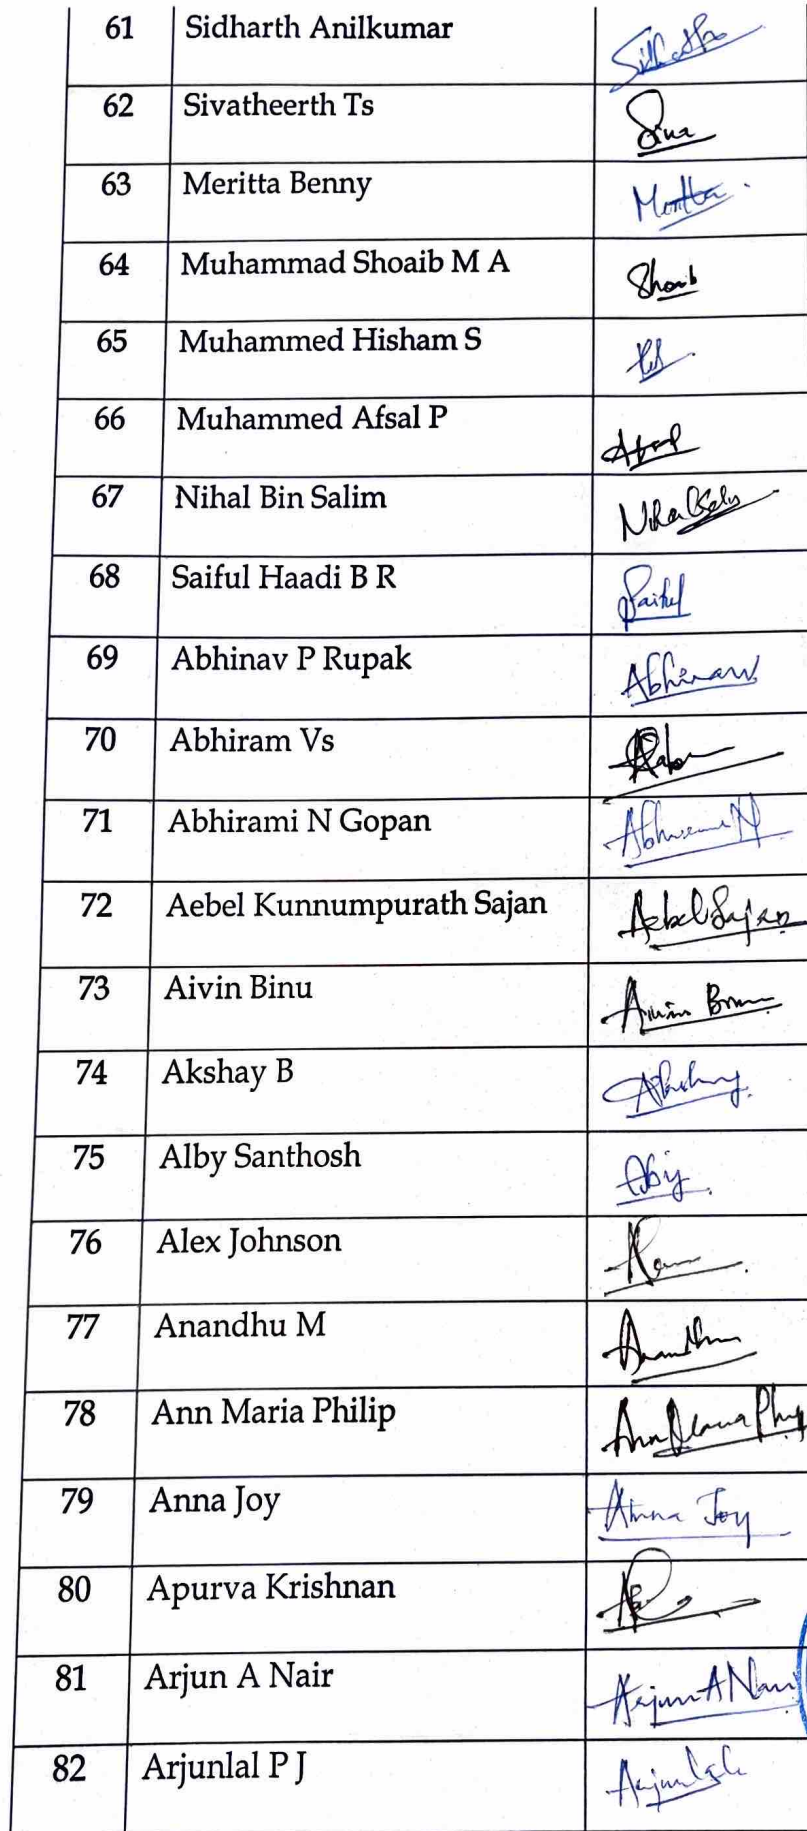 61 Sidharth Anilkumar
62 Sivatheerth Ts Siva
63 Meritta Benny Meritta
64 Muhammad Shoaib M A Shoaib
65 Muhammed Hisham S
66 Muhammed Afsal P Afsal
67 Nihal Bin Salim
68 Saiful Haadi B R Saiful
69 Abhinav P Rupak Abhinav
70 Abhiram Vs
71 Abhirami N Gopan
72 Aebel Kunnumpurath Sajan Aebel Sajan
73 Aivin Binu Aivin Binu
74 Akshay B
75 Alby Santhosh
76 Alex Johnson
77 Anandhu M Anandhu
78 Ann Maria Philip Ann Maria Philip
79 Anna Joy Anna Joy
80 Apurva Krishnan
81 Arjun A Nair Arjun A Nair
82 Arjunlal P J Arjunlal